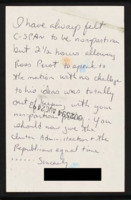 I have always felt
C-SPAN to be nonpartisan
but 2 1/2 hours allowing
Ross Perot to speak to
the nation with no challenge
to his ideas was totally
out of with your
nonpartisan You
should now give the
Clinton Administration & the
Republicans equal time
Sincerely